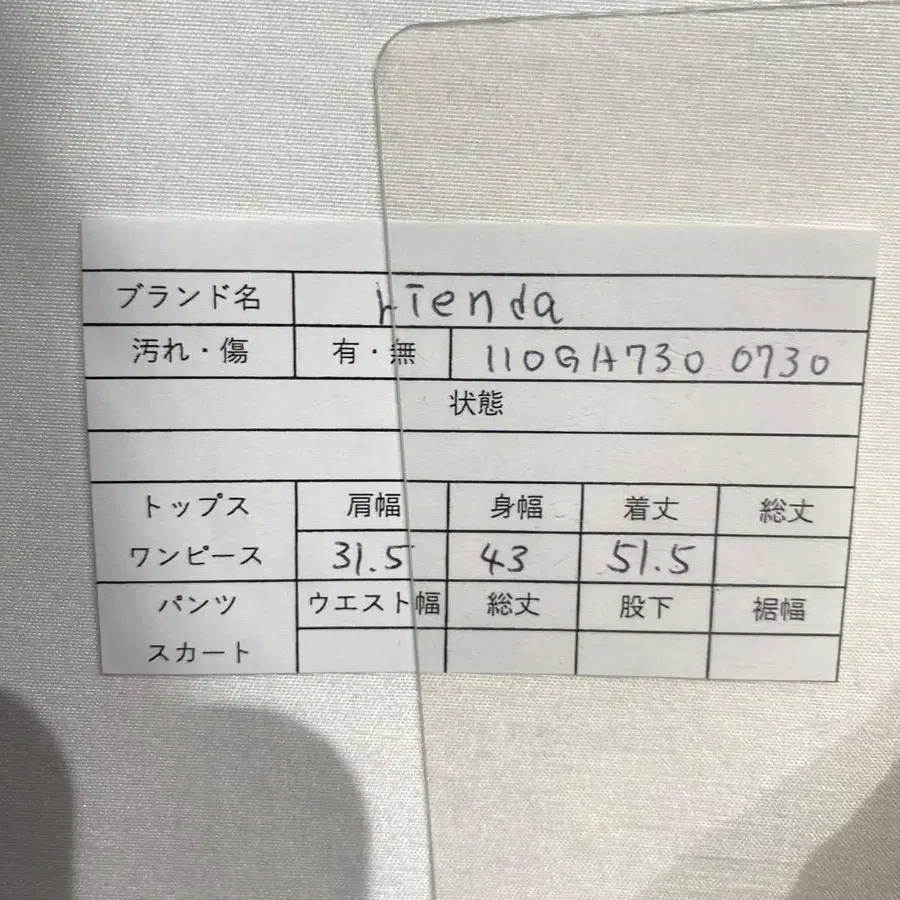 ブランド名 rienda
汚れ・傷 有・無 110GH730 0730
状態
トップス 肩幅 身幅 着丈 総丈
ワンピース 31.5 43 51.5
パンツ ウエスト幅 総丈 股下 裾幅
スカート